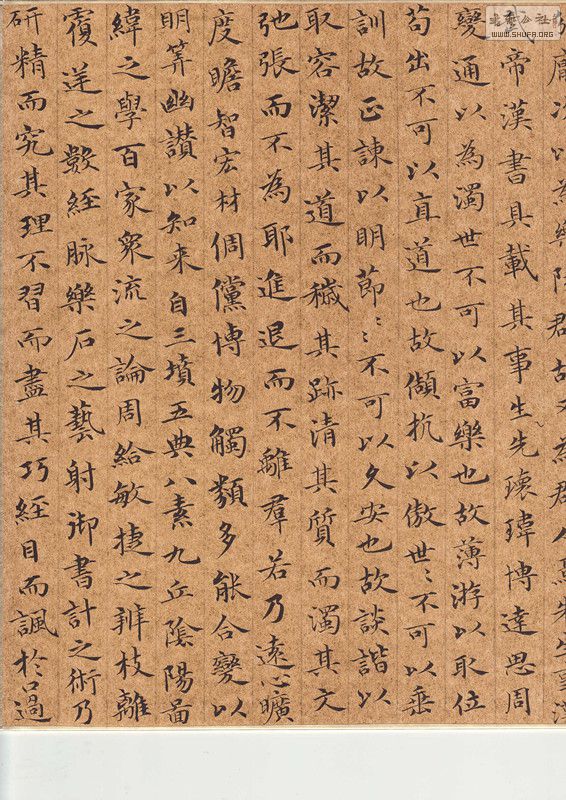 WWW.SHUFA.ORG
以為樂陵君故又為君人焉先生事漢
帝漢書具載其事生先瓌瑋博達思周
變通以為濁世不可以富樂也故薄游以取位
苟出不可以直道也故傾抗以傲世〻不可以垂
訓故正諫以明節〻不可以久安也故談諧以
取容潔其道而穢其跡清其質而濁其文
弛張而不為耶進退而不離群若乃遠心曠
度瞻智宏材倜儻博物觸類多能合變以
明筭幽讚以知來自三墳五典八素九丘陰陽啚
緯之學百家衆流之論周給敏捷之辨枝離
覆逆之數經脉樂石之藝射御書計之術乃
研精而究其理不習而盡其巧經目而諷於口過